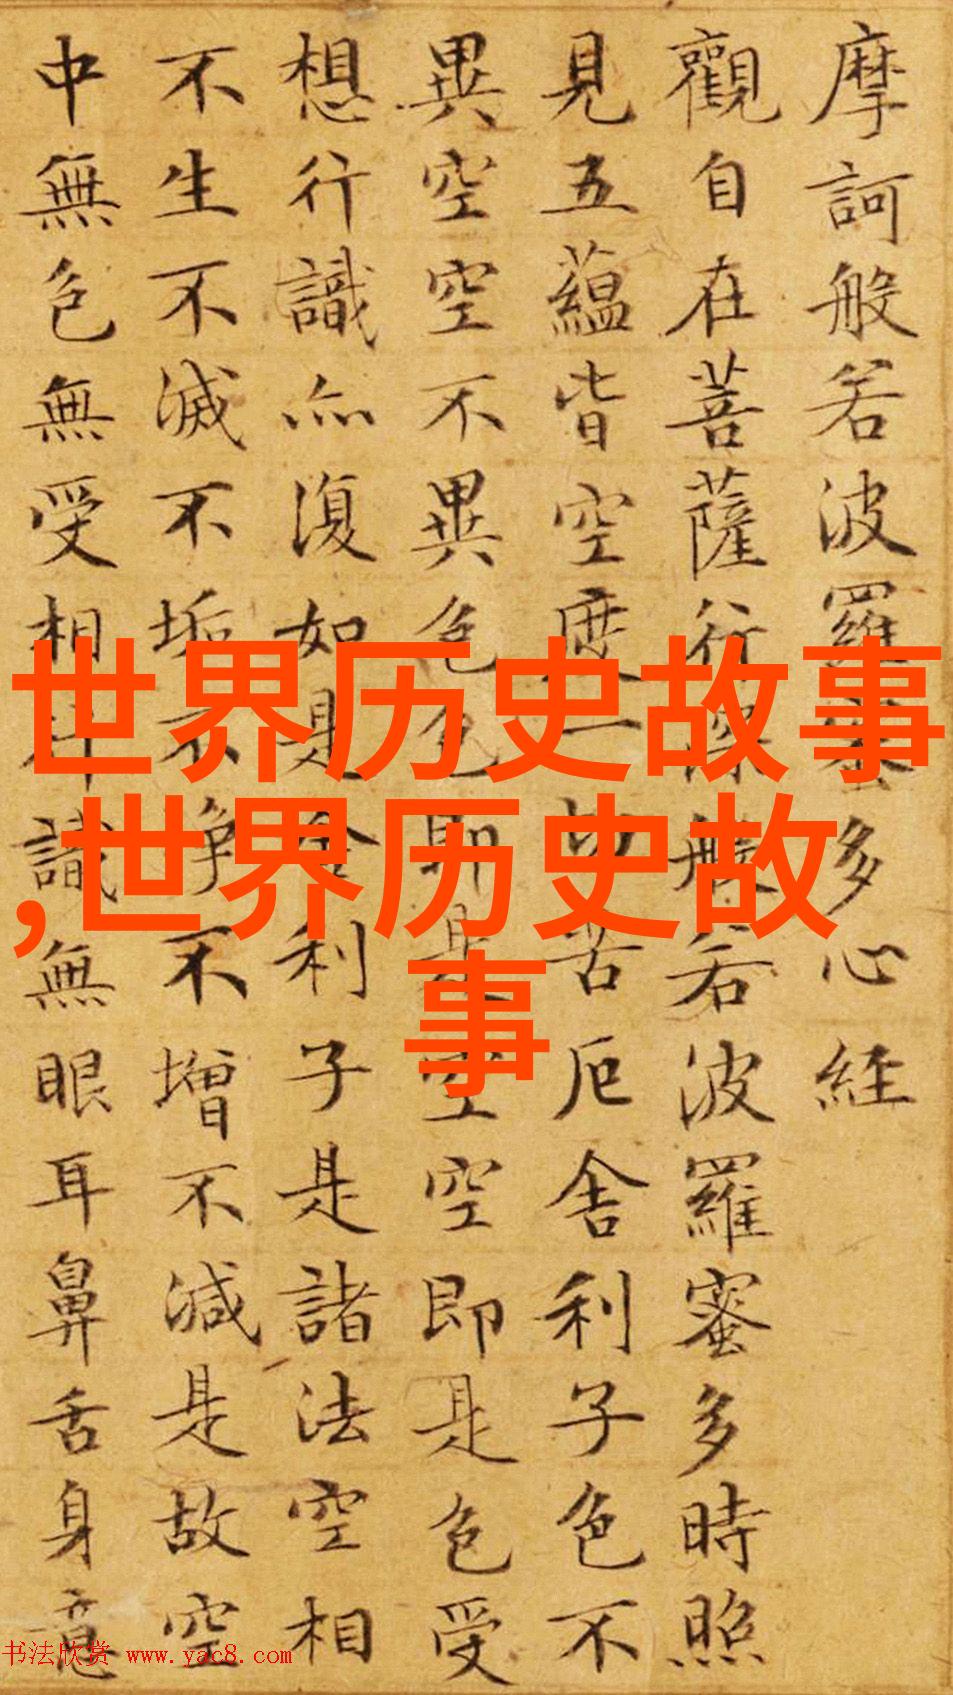 摩訶般若波羅蜜多心経
觀自在菩薩行深般若波羅蜜多時照
見五蘊皆空度一切苦厄舍利子色不
異空空不異色色即是空空即是色受
想行識亦復如是舍利子是諸法空相
不生不滅不垢不淨不增不減是故空
中無色無受想行識無眼耳鼻舌身意
世界历史故事
,世界历史故
事
书法欣赏 www.yac8.com